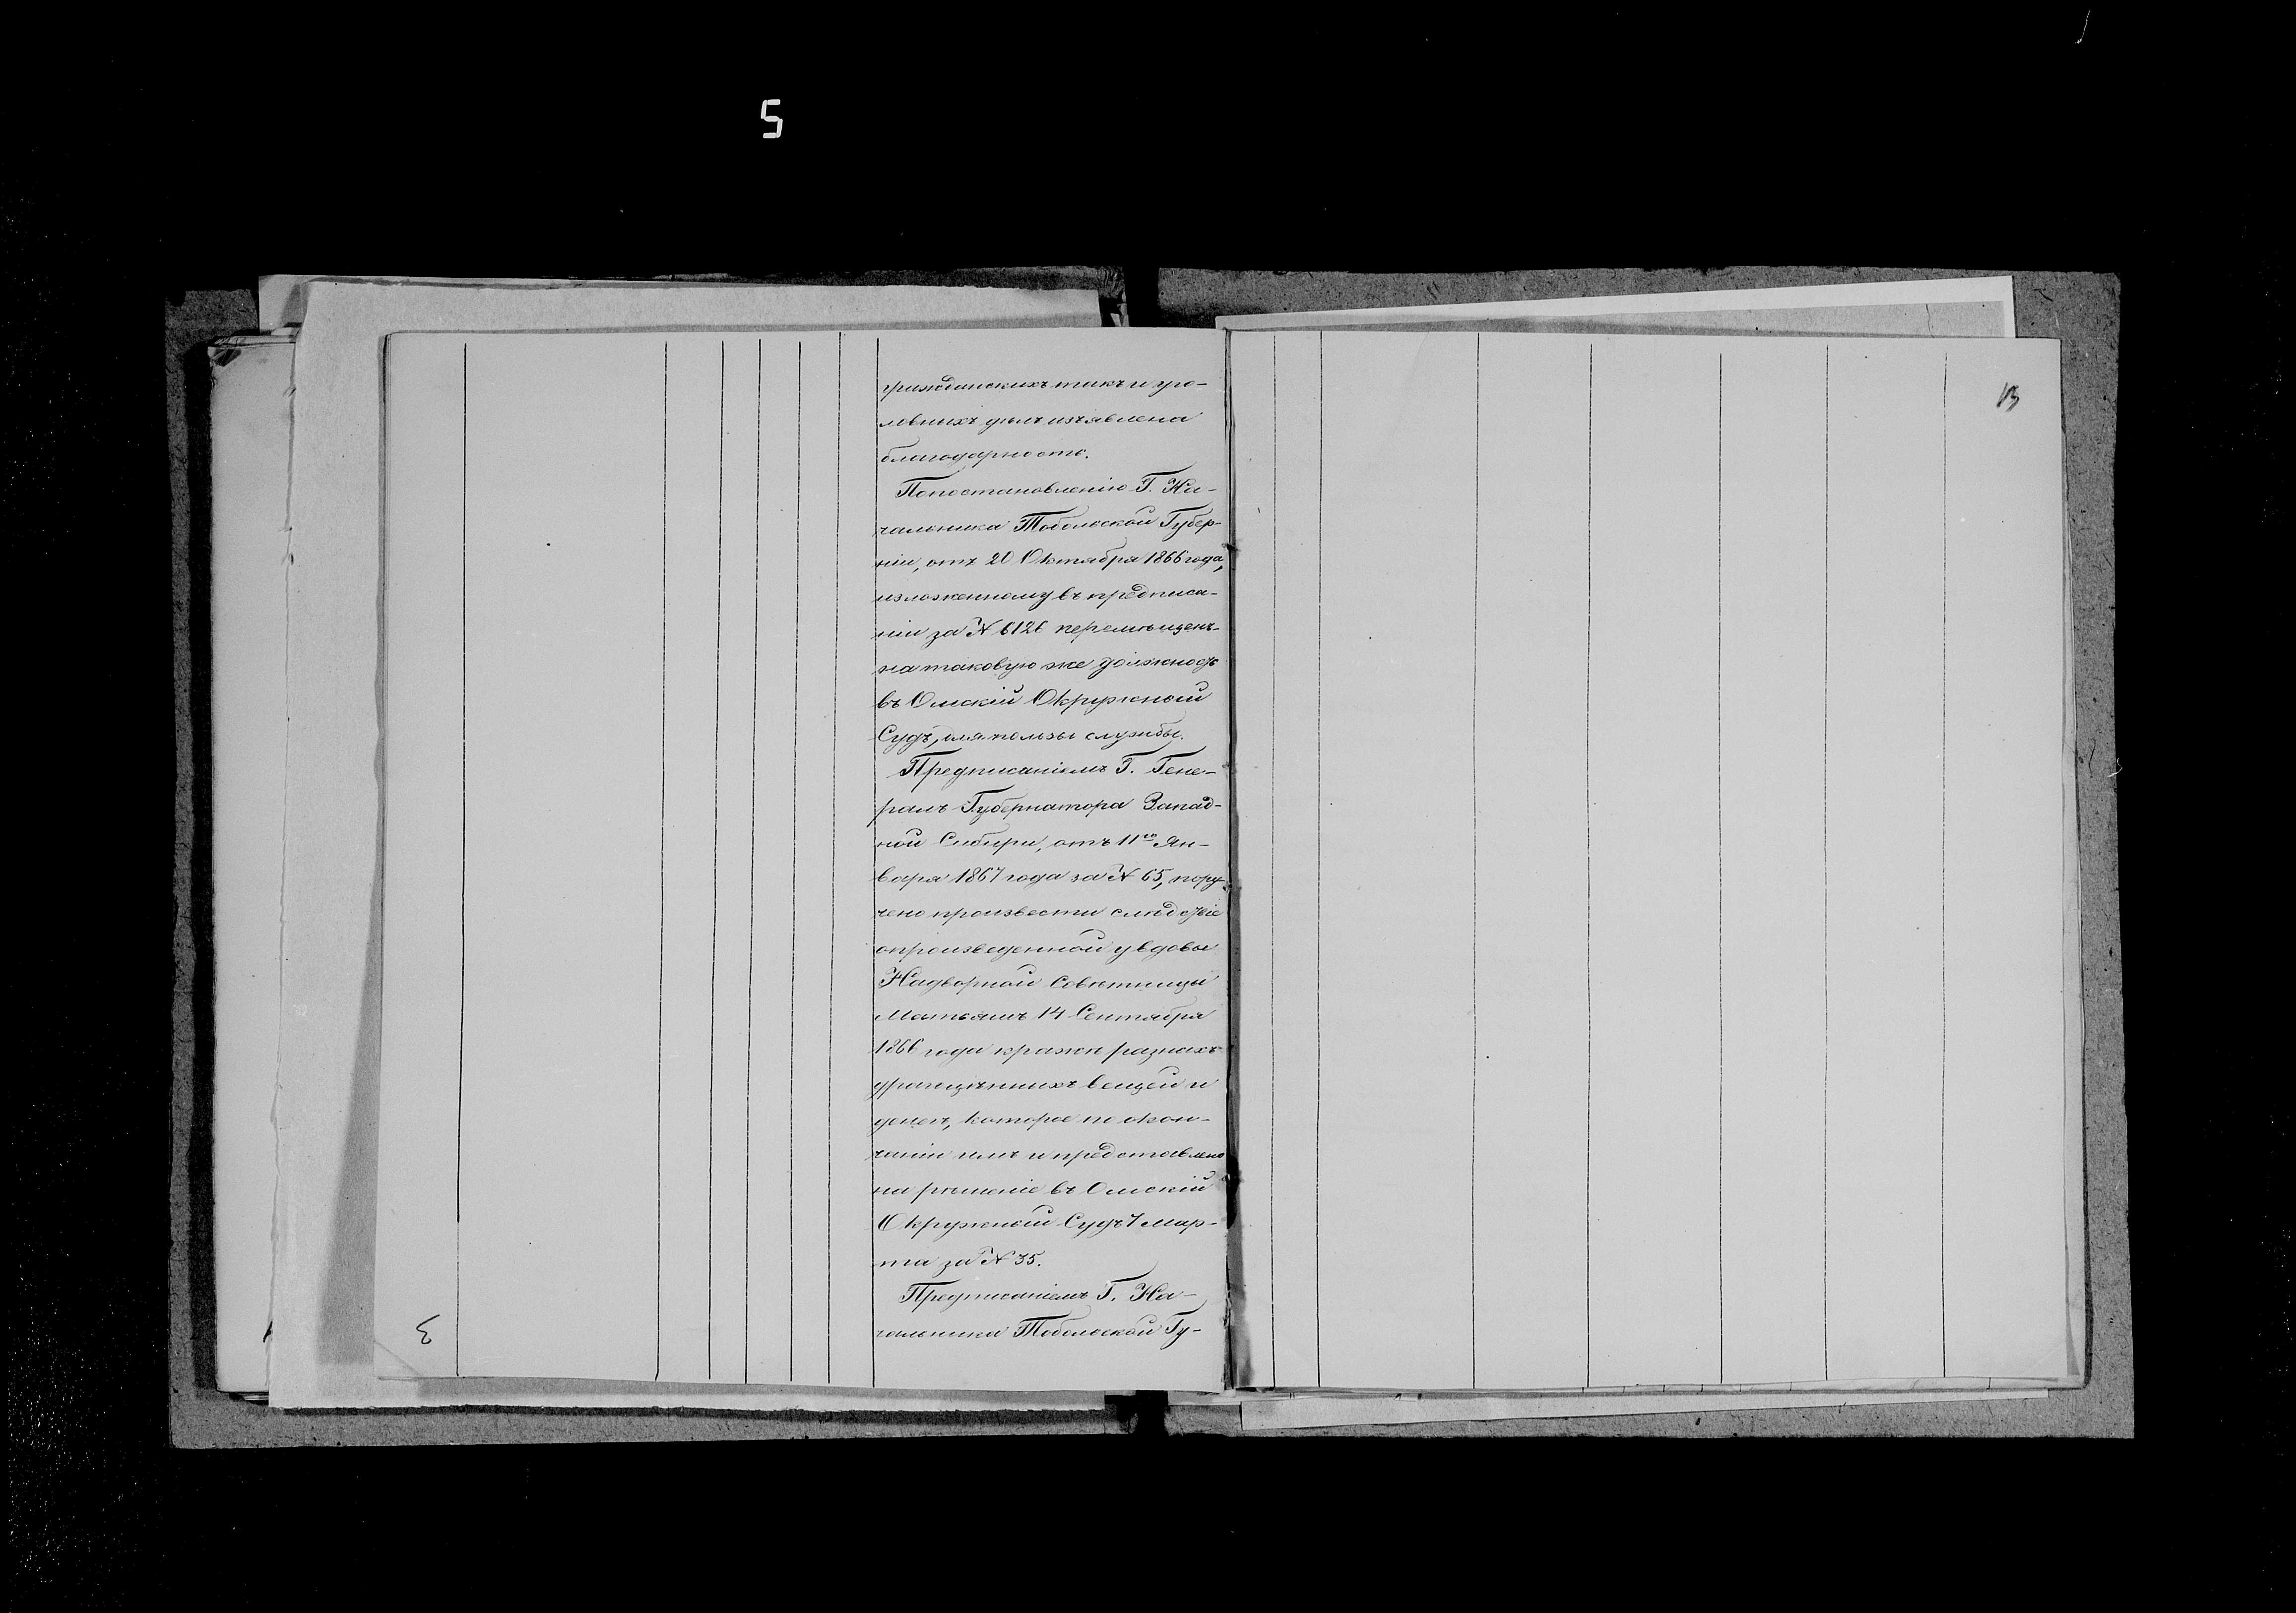 5
13
гражданскихъ такъ и уго-
ловныхъ дѣлъ изъявлена
благодарность.
По постановленію Г. На-
чальника Тобольской Губер-
ніи, отъ 20 Октября 1866 года,
изложенному въ предписа-
ніи за № 6126 перемѣщенъ
на таковую же должность
въ Омскій Окружный
Судъ, для пользы службы.
Предписаніемъ Г. Гене-
ралъ Губернатора Запад-
ной Сибири, отъ 11го Ян-
варя 1867 года за № 65, пору-
чено произвести слѣдствіе
о произведенной у вдовы
Надворной Совѣтницы
14 Сентября
1866 года кражѣ разныхъ
драгоцѣнныхъ вещей и
денегъ, которое по окон-
чаніи имъ и представлено
на рѣшеніе въ Омскій
Окружный Судъ 7 Мар-
та за № 35.
Предписаніемъ Г. На-
чальника Тобольской Гу-